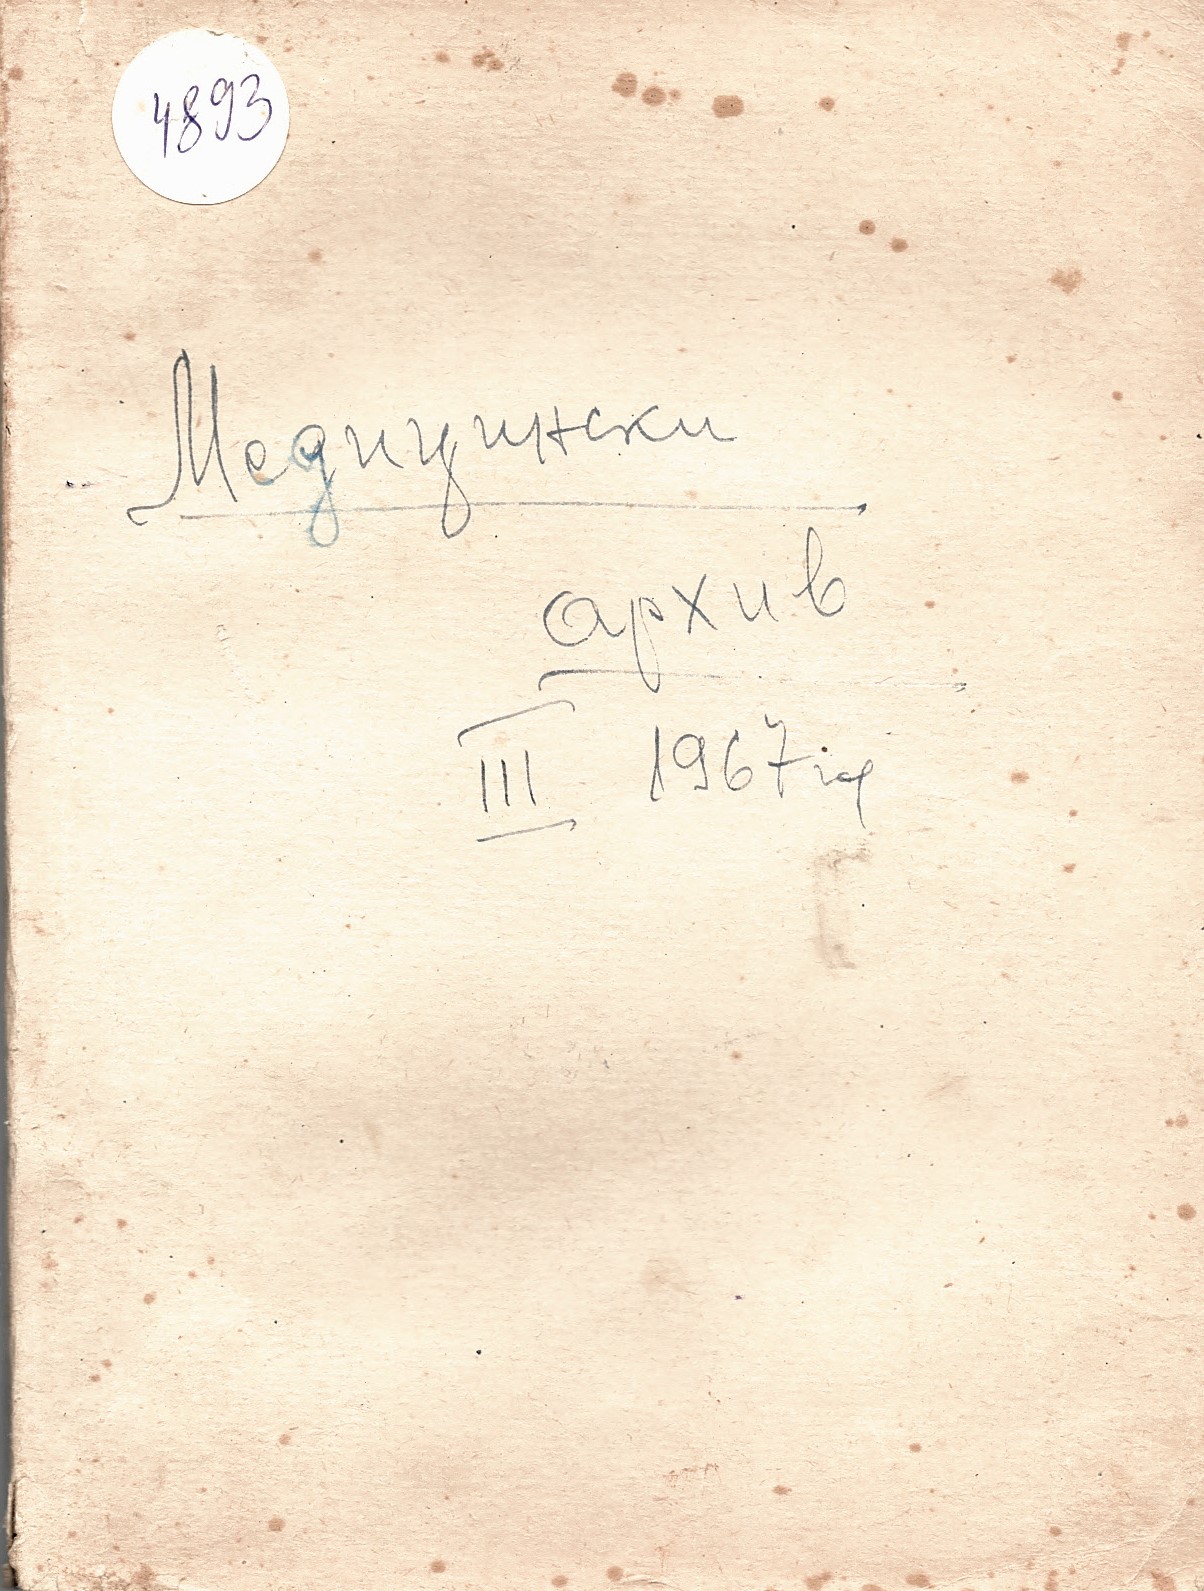 4893
Медицински
архив
III 1967 г